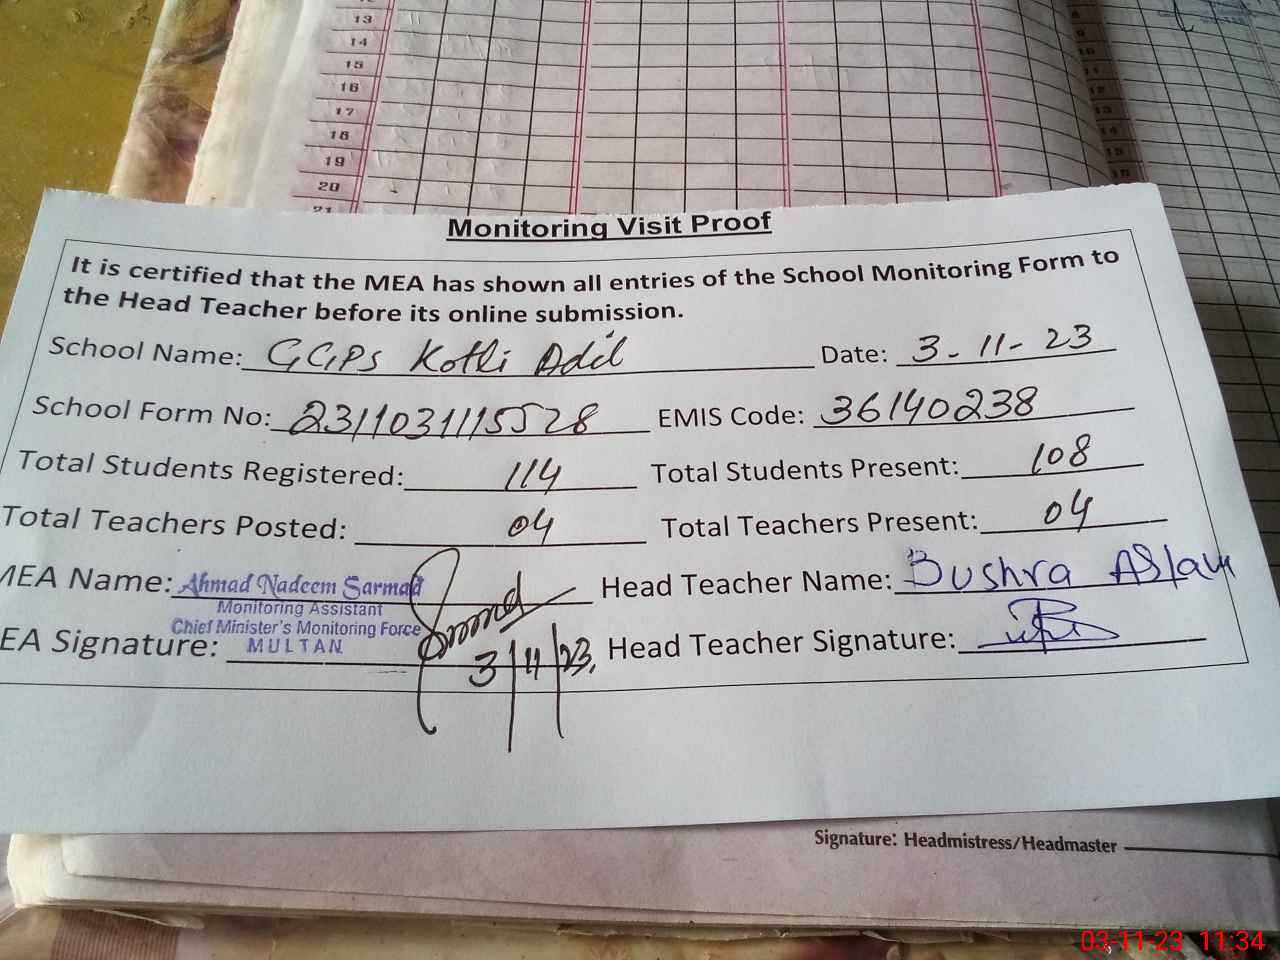 13
14
15
16
17
18
19
20
21
Monitoring Visit Proof
It is certified that the MEA has shown all entries of the School Monitoring Form to
the Head Teacher before its online submission.
School Name: GGPS Kotli Adil Date: 3-11-23
School Form No: 2311031115528 EMIS Code: 36140238
Total Students Registered: 114 Total Students Present: 108
Total Teachers Posted: 04 Total Teachers Present: 04
MEA Name: Ahmad Nadeem Sarmad Head Teacher Name: Bushra Aslam
Monitoring Assistant
Chief Minister's Monitoring Force
MULTAN
EA Signature: 3/11/23. Head Teacher Signature:
Signature: Headmistress/Headmaster
03-11-23 11:34